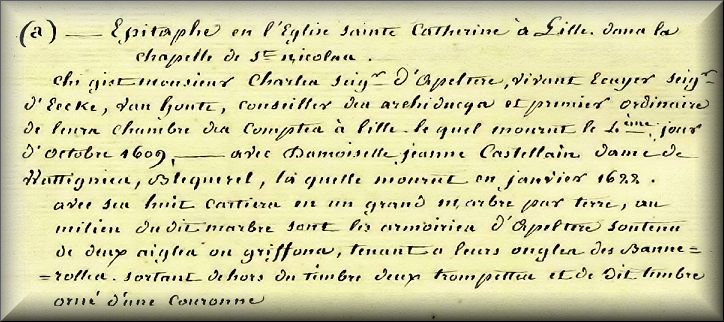 (a) — Epitaphe en l'Eglise sainte Catherine à Lille. dans la
chapelle de Ste nicolas.
Chi gist monsieur Charles seigr d'Apeltere, vivant Ecuyer seigr
d'Eecke, van houte, conseiller des archiducqs et premier ordinaire
de leurs chambre des Comptes à lille. le quel mourut le 4ième jour
d'octobre 1609, — avec Damoiselle jeanne Castellain dame de
Wattignies, Blequerel, la quelle mourut en janvier 1622.
avec ses huit cartiers en un grand marbre par terre, au
milieu du dit marbre sont les armoiries d'Apeltre soutenu
de deux aigles ou griffons, tenant a leurs ongles des Banne=
=rolles. sortant dehors du timbre deux trompettes et de dit timbre
orné d'une couronne